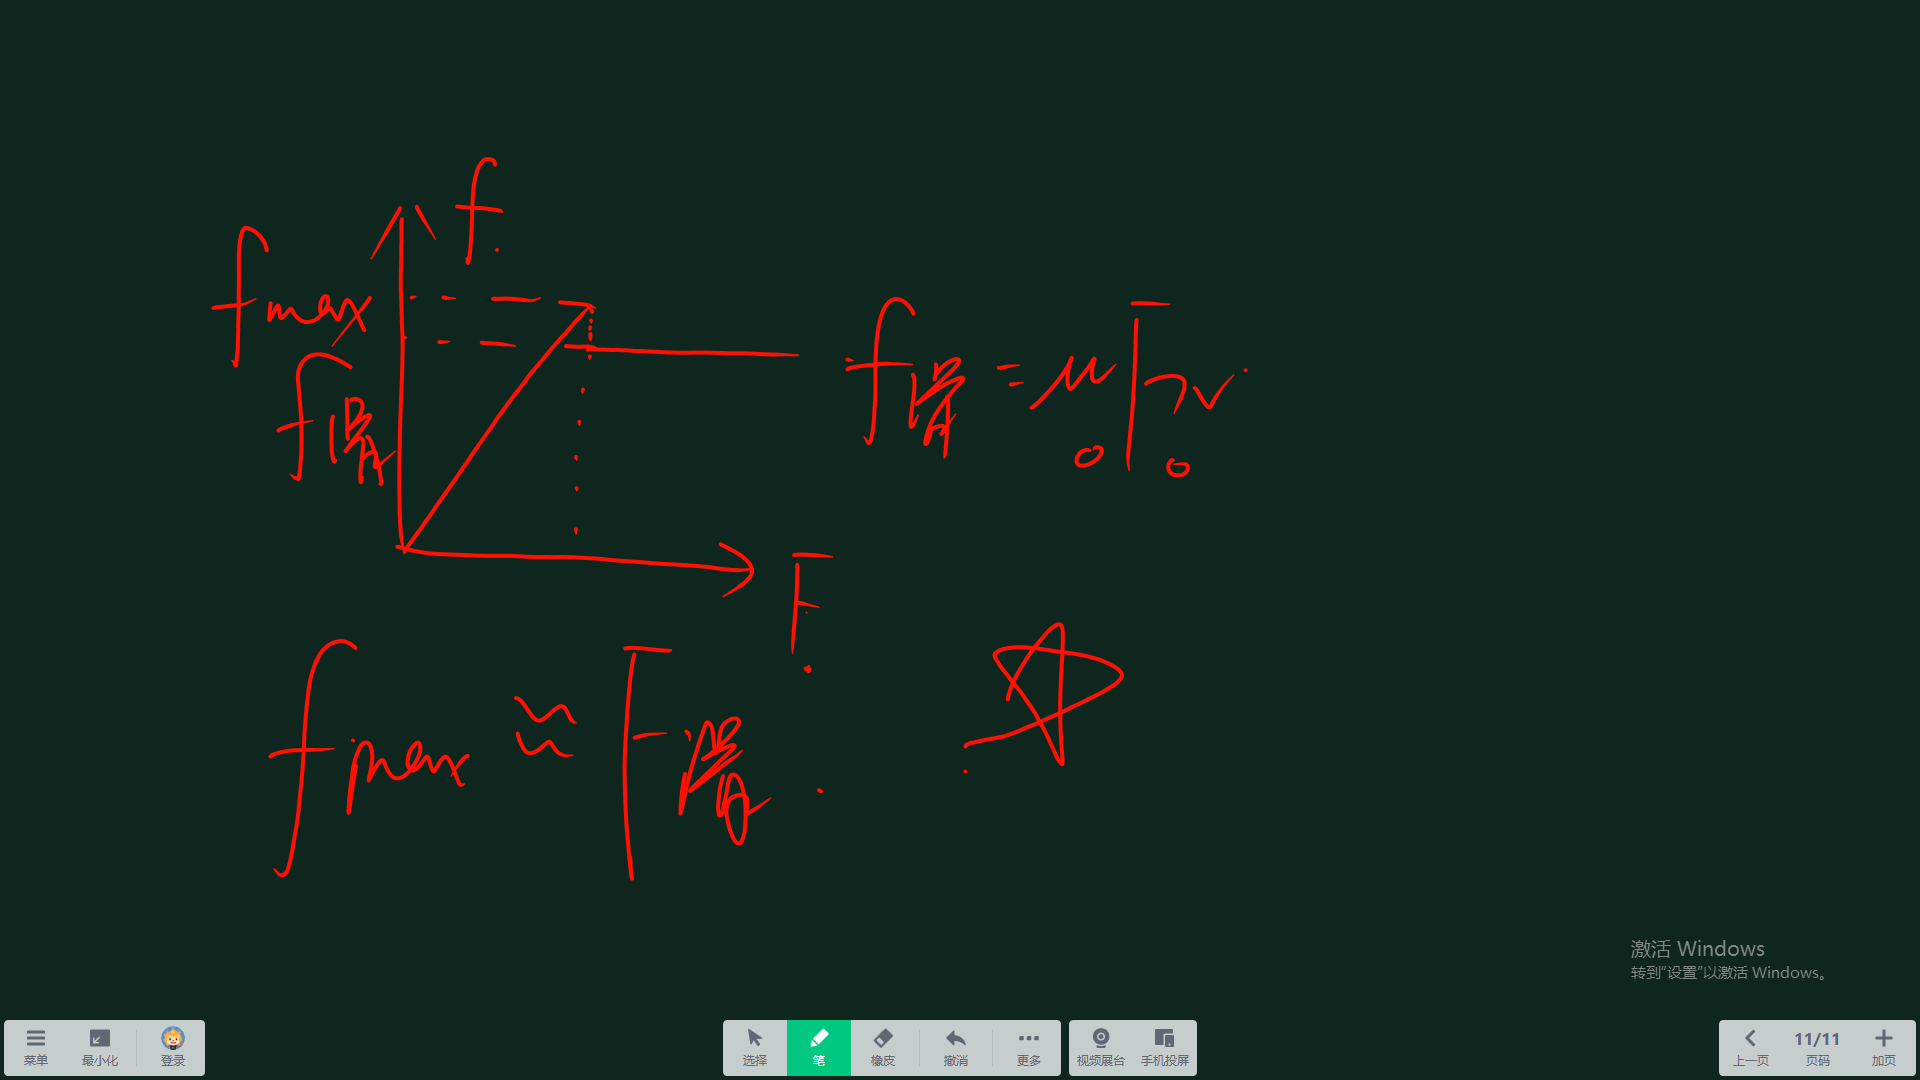 f
fmax
f滑
f滑 = μFN
F
fmax ≈ F滑
激活 Windows
转到“设置”以激活 Windows。
菜单 最小化 登录 选择 笔 橡皮 撤消 更多 视频展台 手机投屏 上一页 11/11 页码 加页